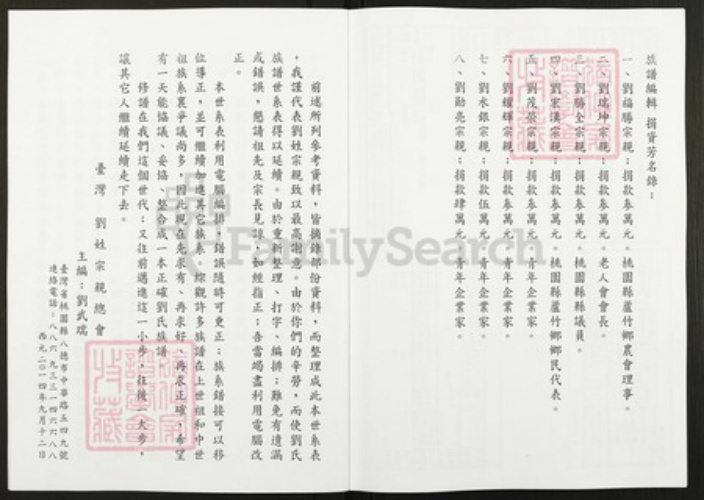 族譜編輯 捐資芳名錄：
一、劉福勝宗親；捐款參萬元。桃園縣蘆竹鄉農會理事。
二、劉瑞坤宗親；捐款參萬元。老人會會長。
三、劉勝全宗親；捐款參萬元。桃園縣縣議員。
四、劉宏漢宗親；捐款參萬元。桃園縣蘆竹鄉鄉民代表。
五、劉茂榮宗親；捐款參萬元。青年企業家。
六、劉耀輝宗親；捐款參萬元。青年企業家。
七、劉水銀宗親；捐款伍萬元。青年企業家。
八、劉勛亮宗親；捐款肆萬元。青年企業家。
前述所列參考資料，皆摘錄部份資料，而整理成此本世系表
，我謹代表劉姓宗親致以最高謝意。由於你們的辛勞，而使劉氏
族譜世系表得以延續。由於重新整理、打字、編排；難免有遺漏
或錯誤，懇請祖先及宗長見諒，如經指正；吾當竭盡利用電腦改
正。
本世系表利用電腦編排，錯誤隨時可更正；族系錯接可以移
位導正，並可繼續加進其它族系，綜觀許多族譜在上世祖和中世
祖族系裏爭議尚多，因此現在先求有、再求好、再求正確，希望
有一天能協議、妥協、整合成一本正確劉氏族譜。
修譜在我們這個世代；又往前邁進這一小步，往後一大步，
讓其它人繼續延續走下去。
臺灣 劉姓宗親總會
主編：劉武瑞
臺灣省桃園縣八德市中華路五四九號
連絡電話：八八六 九三三一四六六八八
西元二〇一四年九月十二日
FamilySearch